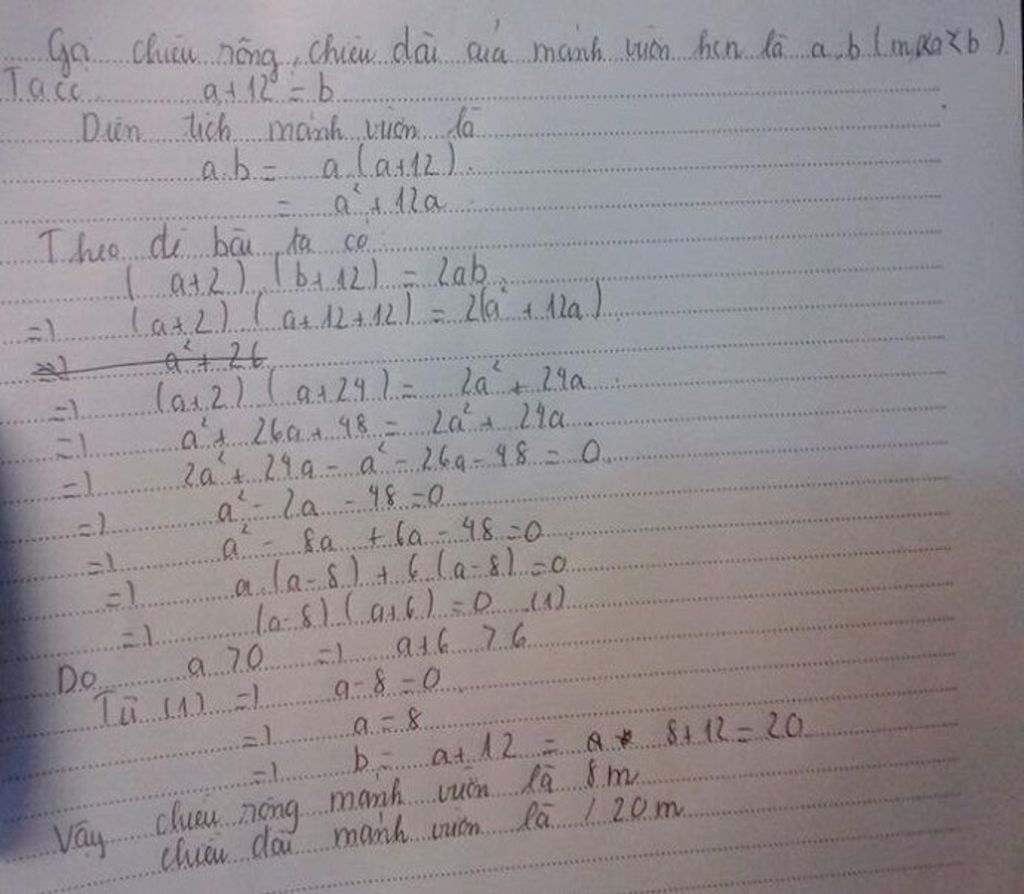 Gọi chiều rộng, chiều dài của mảnh vườn hcn là a, b (m, 0<a<b)
Ta có a+12 = b
Diện tích mảnh vườn là
a.b = a.(a+12)
= a² + 12a
Theo đề bài ta có
(a+2).(b+12) = 2ab
=> (a+2)(a+12+12) = 2(a² + 12a)
=> a² + 26
=> (a+2)(a+24) = 2a² + 24a
=> a² + 26a + 48 = 2a² + 24a
=> 2a² + 24a - a² - 26a - 48 = 0
=> a² - 2a - 48 = 0
=> a² - 8a + 6a - 48 = 0
=> a.(a-8) + 6(a-8) = 0
=> (a-8)(a+6) = 0 (1)
Do a > 0 => a+6 > 6
Từ (1) => a-8 = 0
=> a = 8
=> b = a+12 = 8+12 = 20
Vậy chiều rộng mảnh vườn là 8m
chiều dài mảnh vườn là 20m